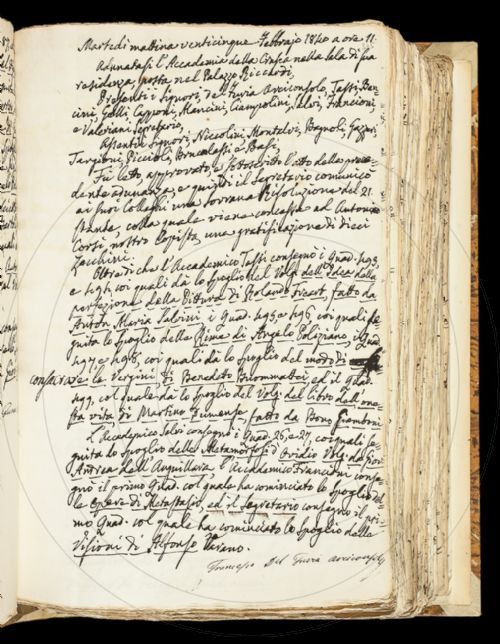 Martedì mattina venticinque Febbrajo 1840 a ore 11.
Adunatasi l'Accademia della Crusca nella sala di sua
residenza posta nel Palazzo Riccardi,
Presenti i Signori, Del Furia Arciconsolo, Tassi, Ben-
cini, Gelli, Capponi, Mancini, Ciampolini, Salvi, Francioni,
e Valeriani Segretario,
Assenti i Signori, Niccolini, Montalvi, Bagnoli, Gazzeri,
Targioni, Piccioli, Brucalassi e Basi,
Fu letto, approvato, e sottoscritto l'atto della prece-
dente adunanza; e quindi il Segretario comunicò
ai suoi Colleghi una sovrana Risoluzione del 21.
stante, colla quale viene concessa ad Antonio
Corsi, nostro Copista, una gratificazione di dieci
Zecchini.
Oltre di che l'Accademico Tassi consegnò i Quad. 493,
e 494, coi quali dà lo spoglio del Volg. dell'Idea della
perfezione della Pittura di Rolando Freart, fatto da
Anton Maria Salvini i Quad. 495, e 496, coi quali se-
guita lo spoglio delle Rime di Angelo Poliziano, i Quad.
497, e 498, coi quali dà lo spoglio del modo di
consacrare le Vergini di Benedeto Buommattei, ed il Quad.
499, col quale dà lo spoglio del Volg. del libro dell'one-
sta vita di Martino Dumense, fatto da Bono Giamboni
L'Accademico Salvi consegnò i Quad. 26, e 27, coi quali se-
guita lo spoglio delle Metamorfosi d'Ovidio Volg. da Gio:
Andrea dell'Anguillara, l'Accademico Francioni conse-
gnò il primo Quad. col quale ha cominciato lo spoglio del-
le Opere di Metastasio, ed il Segretario consegnò il pri-
mo Quad. col quale ha cominciato lo spoglio delle
Visioni di Alfonso Varano.
Francesco Del Furia Arciconsolo